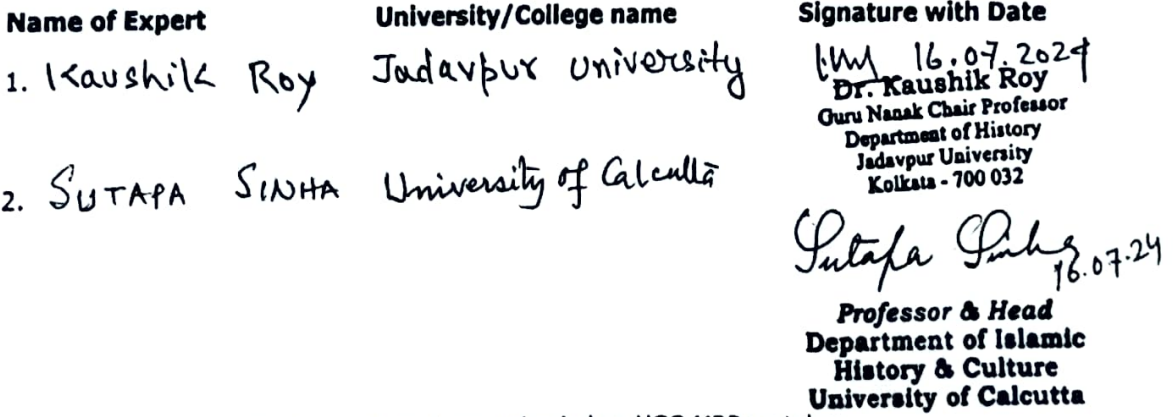 Name of Expert University/College name Signature with Date
1. Kaushik Roy Jadavpur University 16.07.2024
Dr. Kaushik Roy
Guru Nanak Chair Professor
Department of History
Jadavpur University
Kolkata - 700 032
2. SUTAPA SINHA University of Calcutta
Sutapa Sinha
16.07.24
Professor & Head
Department of Islamic
History & Culture
University of Calcutta